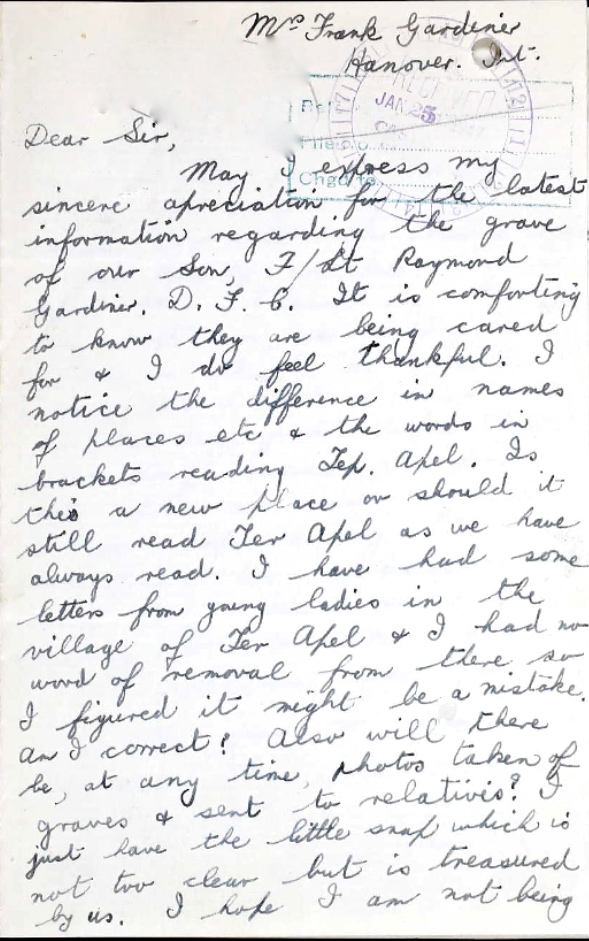 Mrs Frank Gardiner
Hanover. Ont.
RECEIVED
JAN 25
Dear Sir,
May I express my
sincere apreciation for the latest
information regarding the grave
of our Son, F/Lt Raymond
Gardiner. D. F. C. It is comforting
to know they are being cared
for & I do feel thankful. I
notice the difference in names
of places etc & the words in
brackets reading Tep. Apel. Is
this a new place or should it
still read Ter Apel as we have
always read. I have had some
letters from young ladies in the
village of Ter Apel & I had no
word of removal from there so
I figured it might be a mistake.
Am I correct? Also will there
be, at any time, photos taken of
graves & sent to relatives? I
just have the little snap which is
not too clear but is treasured
by us. I hope I am not being